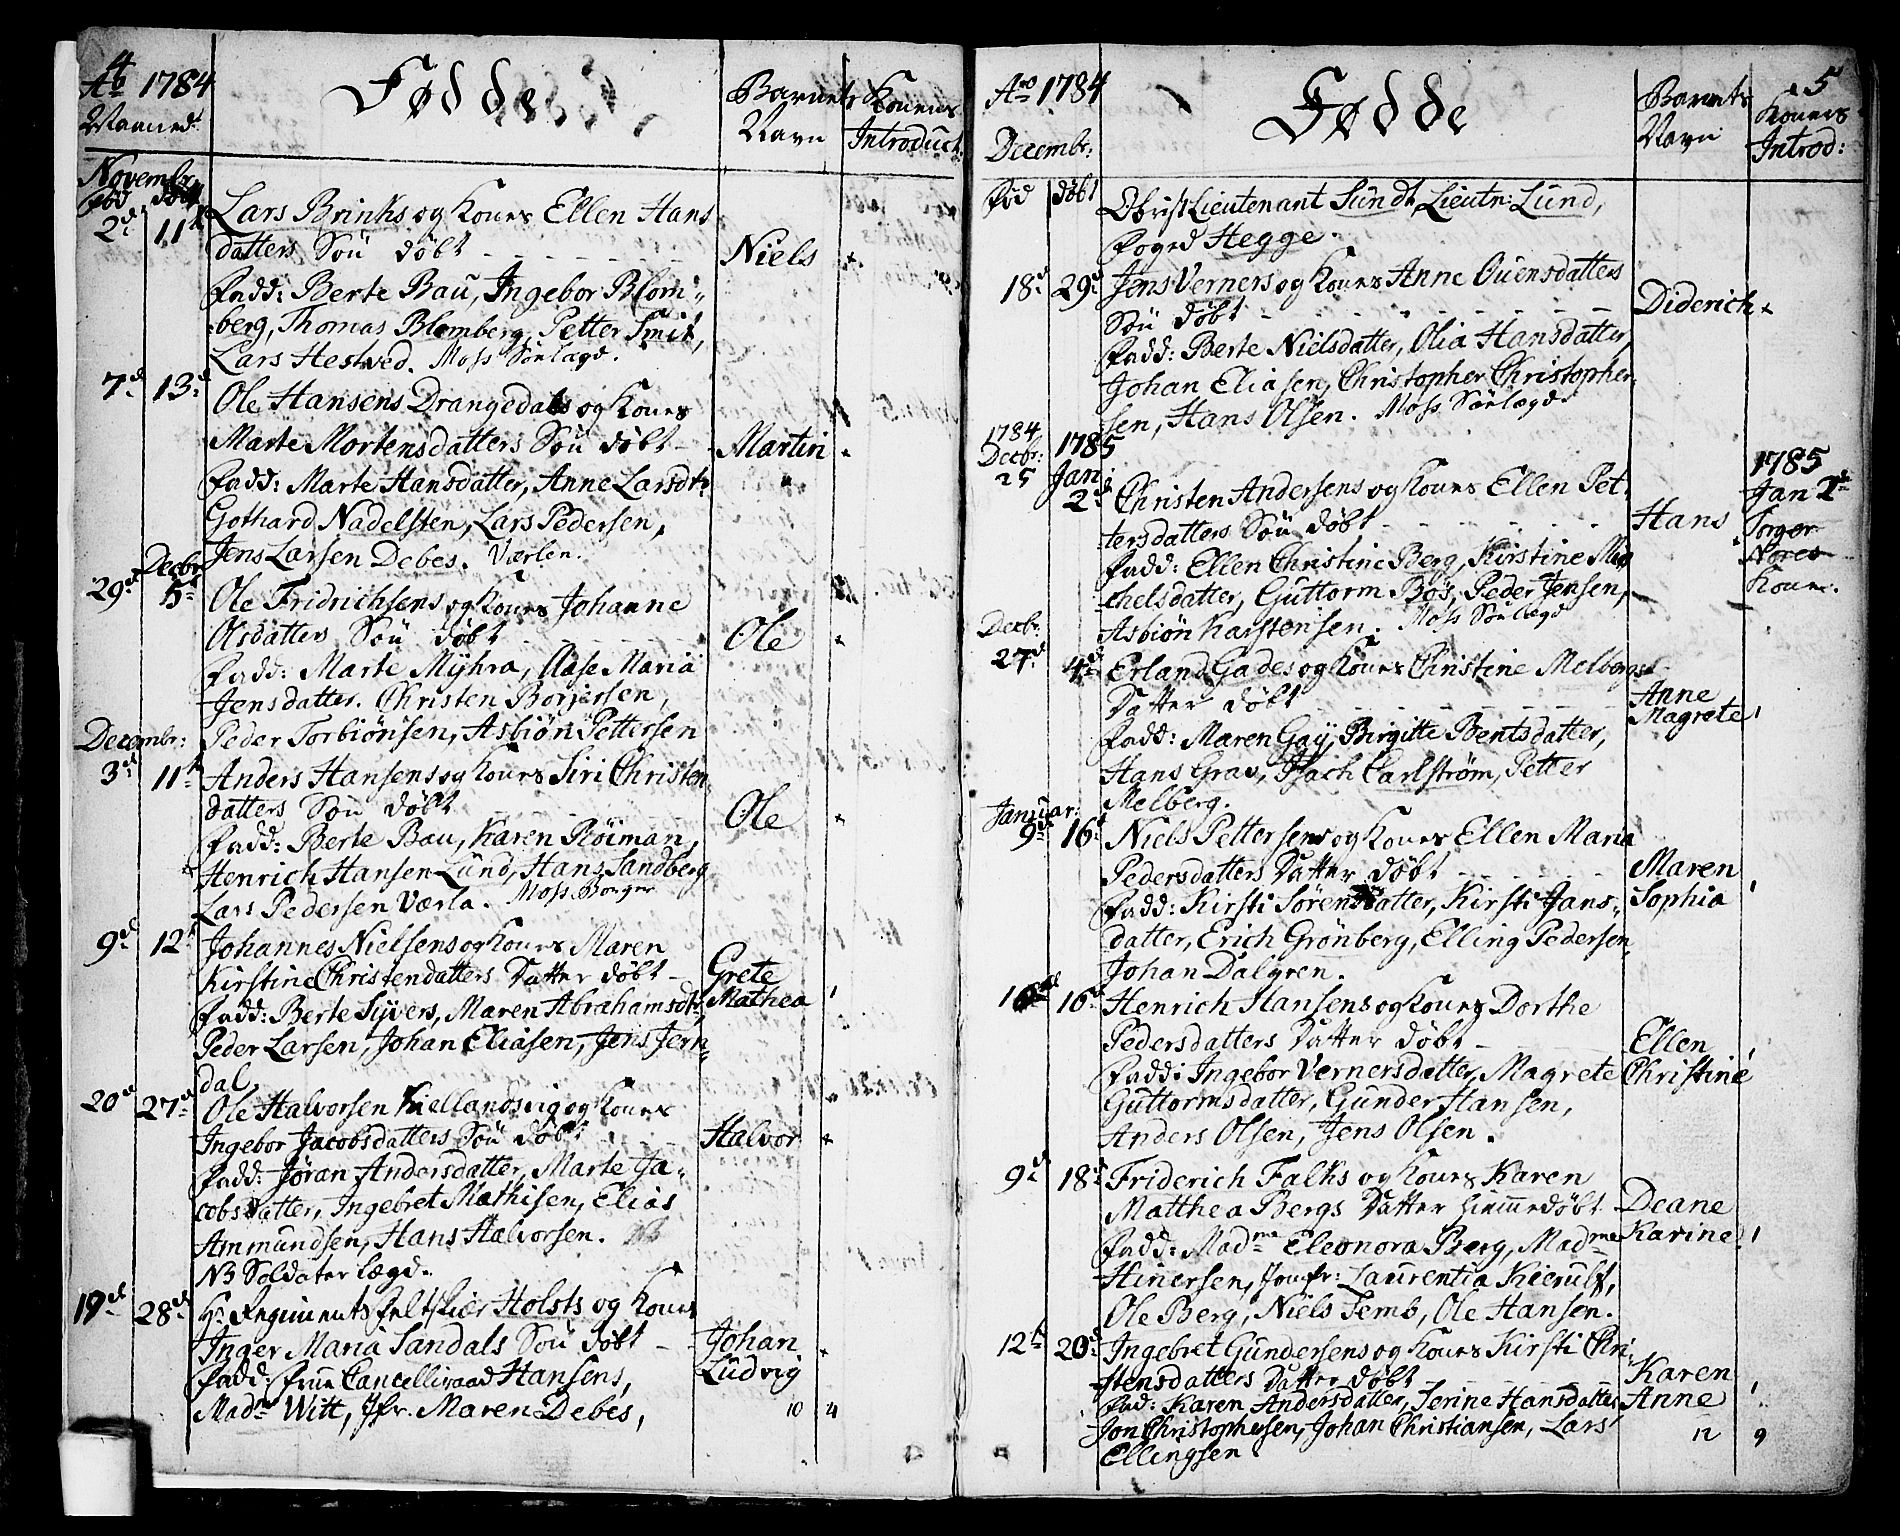 4
Ao 1784
Maaned
Fødde
Barnets Navn
Konens Introduct:
Novembr.
Fød døbt
2d 11t
Lars Brinks og Kones Ellen Hans
datters Søn døbt
Niels
Fadd: Berte Bau, Ingebor Blom„
berg, Thomas Blomberg, Petter Smit,
Lars Hestved. Moss Sønlægd.
7d 13d
Ole Hansens Drangedals og Kones
Marte Mortensdatters Søn døbt
Martin
Fadd: Marte Hansdatter, Anne Larsdtr
Gothard Nadelsten, Lars Pedersen,
Jens Larsen Debes. Værlen.
29d Decbr 5t
Ole Fridrichsens og Kones Johanne
Olsdatters Søn døbt
Ole
Fadd: Marte Myhra, Aase Maria
Jensdatter. Christen Borjersen,
Peder Torbiönsen, Asbiön Pettersen
Decembr:
3d 11t
Anders Hansens og Kones Siri Christen„
datters Søn døbt
Ole
Fadd: Berte Bau, Karen Röiman,
Henrich Hansen Lund, Hans Sandberg
Lars Pedersen Værla. Moss Borger
9d 12t
Johannes Nielsens og Kones Maren
Kirstine Christendatters Datter døbt
Grete
Mathea
Fadd: Berte Syvers, Maren Abrahamsdtr,
Peder Larsen, Johan Eliasen, Jens Jern„
dal,
20d 27d
Ole Halvorsen Kiellandsvig og Kones
Ingebor Jacobsdatters Søn døbt
Halvor
Fadd: Jøran Andersdatter, Marte Ja„
cobsdatter, Ingebret Mathisen, Elias
Ammundsen, Hans Halvorsen.
NB Soldater lægd.
19d 28d
Hr Regiments feltskier Holsts og Kones
Inger Maria Sandals Søn døbt
Johan
Ludvig
Fadd: Frue Cancelliraad Hansens,
Madme Witt, Jfr. Maren Debes,
10 4
5
Ao 1784
Decembr:
Fødde
Barnets Navn
Konens Introd:
Fød døbt
Obrist Lieutenant Sundt, Lieutn: Lund,
Foged Hegge.
18d 29d
Jens Verners og Kones Anne Ouensdatters
Søn døbt
Diderich
Fadd: Berte Nielsdatter, Olia Hansdatter,
Johan Eliasen, Christopher Christopher„
sen, Hans Olsen. Moss Sønlægd
1784 Decbr: 25
1785 Jan: 2d
Christen Andersens og Kones Ellen Pet„
tersdatters Søn døbt
Hans
1785
Jan
Kone.
Fadd: Ellen Christine Berg, Kirstine Mi
chelsdatter, Guttorm Bös, Peder Jensen,
Asbiön Karstensen. Moss Sønlægd
Decbr: 27d 4d
Erland Gades og Kones Christine Melbergs
Datter døbt
Anne
Magrete
Fadd: Maren Gay, Birgitte Bentsdatter,
Hans Grav, Isach Carlström, Petter
Melberg.
Januar:
9d 16t
Niels Pettersens og Kones Ellen Maria
Pedersdatters Datter døbt
Maren
Sophia
Fadd: Kirsti Sörensdatter, Kirsti Jans„
datter, Erich Grönberg, Elling Pedersen,
Johan Dalgren.
16d
Henrich Hansens og Kones Dorthe
Pedersdatters Datter døbt
Ellen
Christine
Fadd: Ingebor Vernersdatter, Magrete
Guttormsdatter, Gunder Hansen,
Anders Olsen, Jens Olsen.
9d 18d
Friderich Falks og Kones Karen
Matthea Bergs Datter hiemmedøbt
Deane
Karine
Fadd: Madme Eleonora Berg, Madme
Hinersen, Jomfr: Laurentia Kierulf,
Ole Berg, Niels Temb, Ole Hansen.
12t 20d
Ingebret Gundersens og Kones Kirsti Chri„
stensdatters Datter døbt
Karen
Anne
Fad: Karen Andersdatter, Serine Hansdatter
Jon Christophersen, Johan Christiansen, Lars
Ellingsen
12 9